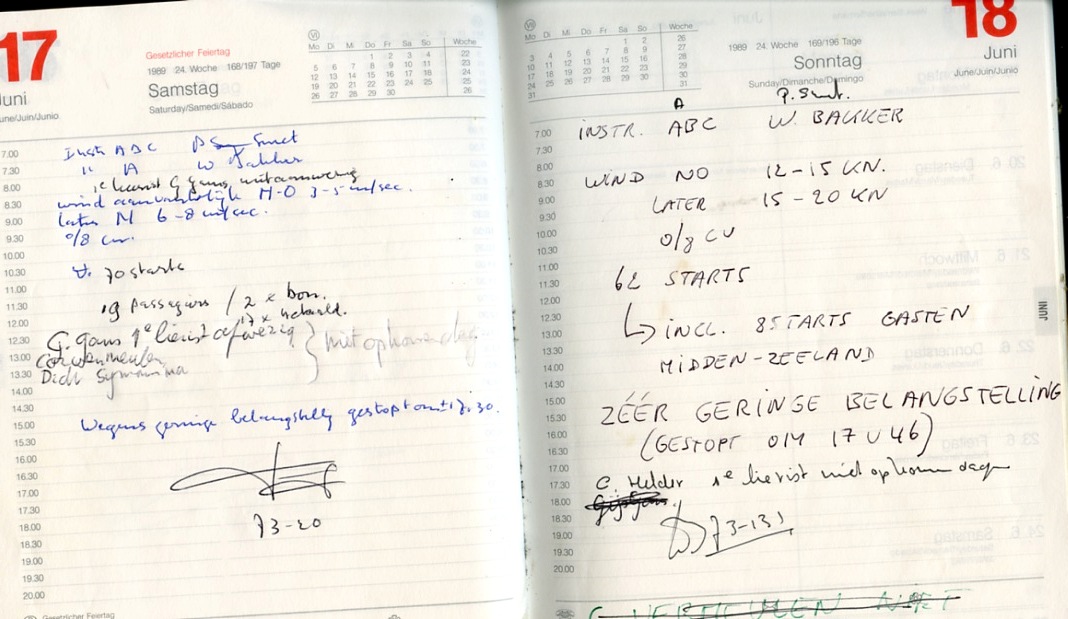 17
Juni
June/Juin/Junio
Gesetzlicher Feiertag
1989 24. Woche 168/197 Tage
Samstag
Saturday/Samedi/Sábado
VI
Mo Di Mi Do Fr Sa So Woche
1 2 3 4 22
5 6 7 8 9 10 11 23
12 13 14 15 16 17 18 24
19 20 21 22 23 24 25 25
26 27 28 29 30 26
7.00 Instr ABC P Smet
7.30 " A W Bakker
8.00 1e lierist G gans
8.30 wind aanvankelijk N-O 3-5 m/sec.
9.00 later N 6-8 m/sec.
9.30 0/8 cu.
10.00
10.30 70 starts
11.00
11.30 19 passagiers / 2 x bon.
12.00 17 x betaald.
12.30 G. gans 1e lierist afwezig } niet op komen dag.
13.00 Cor Vermeulen
13.30 Dick
14.00
14.30 Wegens geringe belangstelling gestopt om ± 17.30.
15.00
15.30
16.00
16.30
17.00
17.30
18.00 73-20
18.30
19.00
19.30
20.00
Gesetzlicher Feiertag
18
Juni
June/Juin/Junio
1989 24. Woche 169/196 Tage
Sonntag
Sunday/Dimanche/Domingo
VII
Mo Di Mi Do Fr Sa So Woche
1 2 26
3 4 5 6 7 8 9 27
10 11 12 13 14 15 16 28
17 18 19 20 21 22 23 29
24 25 26 27 28 29 30 30
31 31
A P. Smet.
7.00 INSTR. ABC W. BAKKER
7.30
8.00
8.30 WIND NO 12-15 KN.
9.00
9.30 LATER 15-20 KN
10.00
10.30 0/8 CU
11.00
11.30 62 STARTS
12.00
12.30
13.00 INCL. 8 STARTS GASTEN
13.30
14.00 MIDDEN-ZEELAND
14.30
15.00
15.30 ZÉÉR GERINGE BELANGSTELLING
16.00
16.30 (GESTOPT OM 17 U 46)
17.00
17.30 C. Helder 1e lierist niet op komen dagen
18.00
18.30
19.00 73-131
19.30
20.00
JUNI